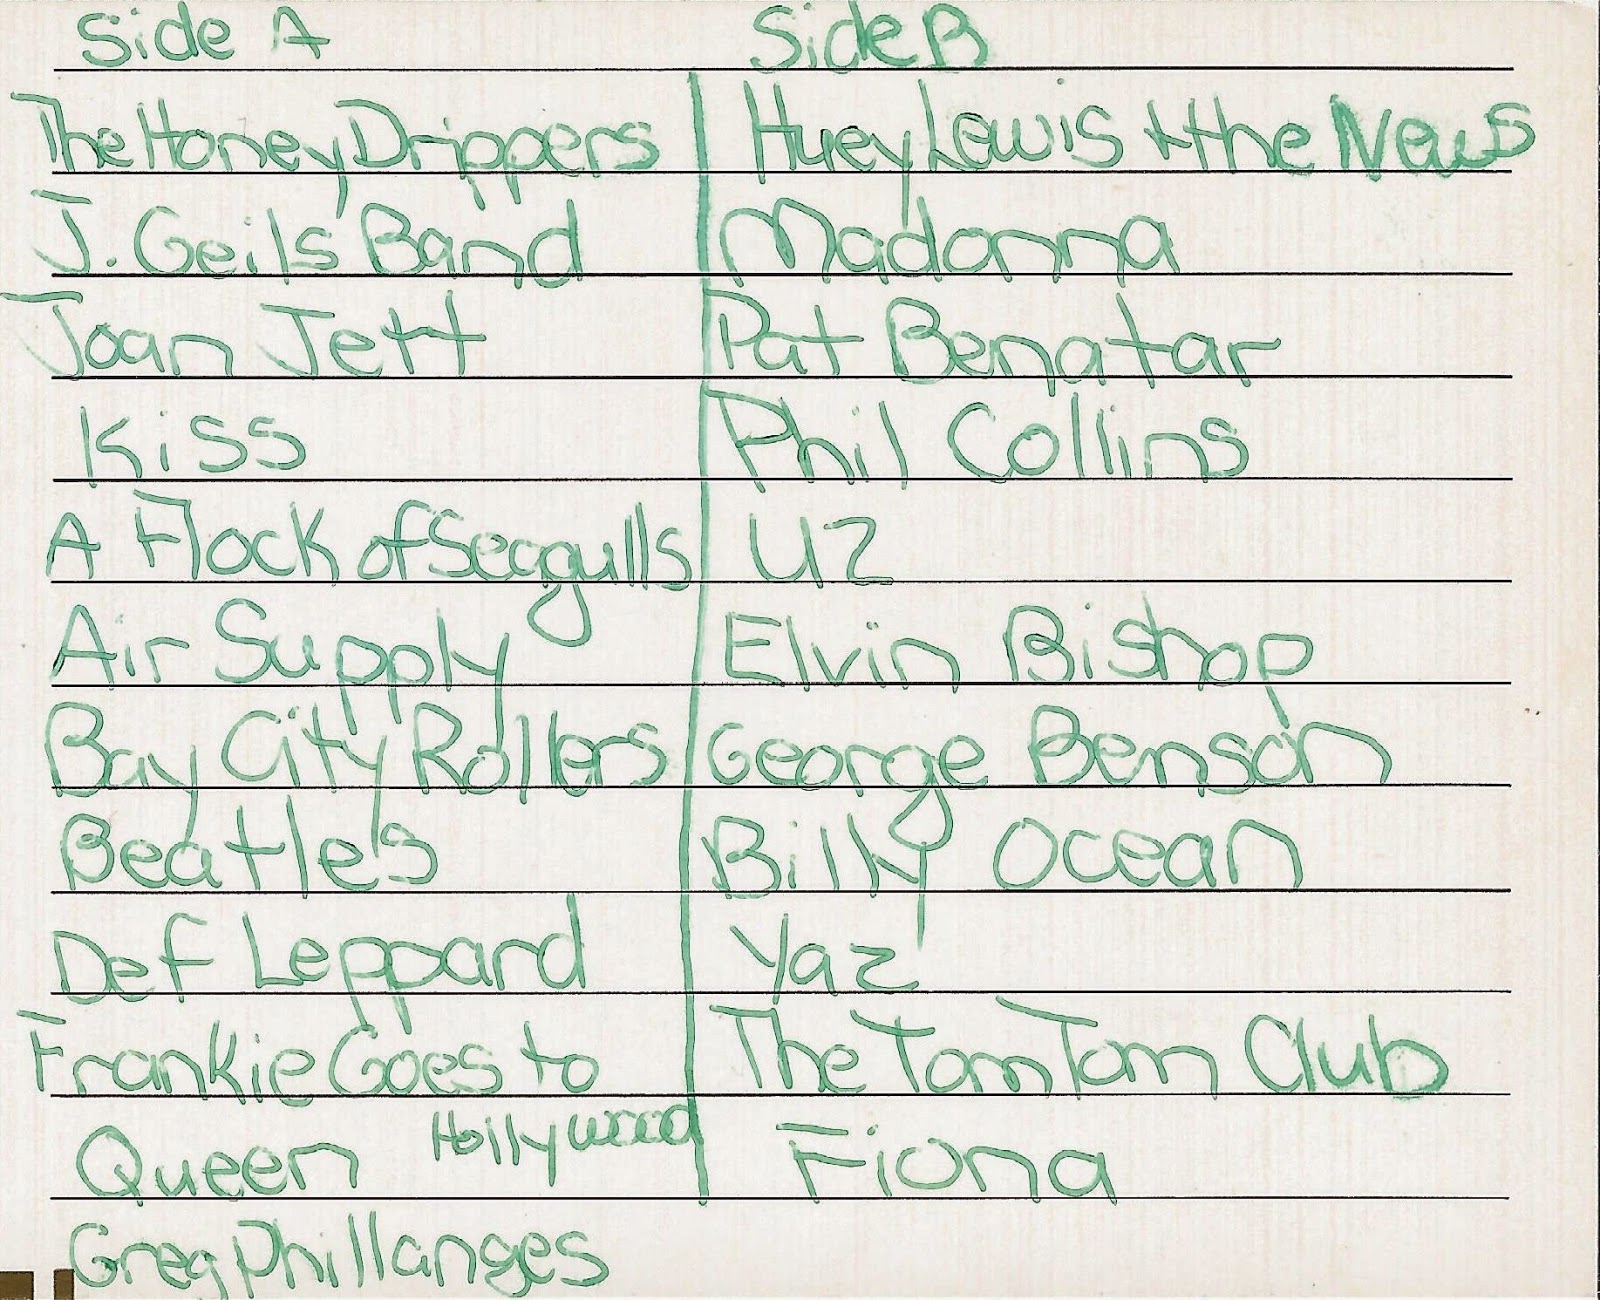 Side A
The Honey Drippers
J. Geils Band
Joan Jett
Kiss
A Flock of Seagulls
Air Supply
Bay City Rollers
Beatles
Def Leppard
Frankie Goes to
Hollywood
Queen
Greg Phillanges
Side B
Huey Lewis + the News
Madonna
Pat Benatar
Phil Collins
U2
Elvin Bishop
George Benson
Billy Ocean
Yaz
The Tom Tom Club
Fiona